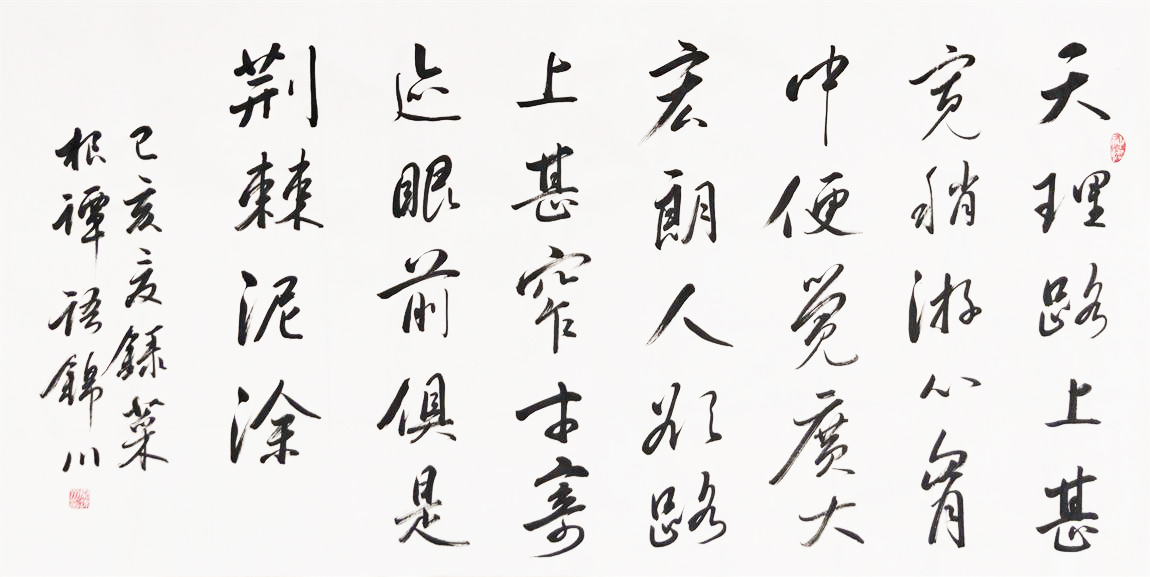 天理路上甚
寬稍游心胷
中便覺廣大
宏朗人欲路
上甚窄才寄
迹眼前俱是
荆棘泥涂
己亥夏録菜
根譚語錦川